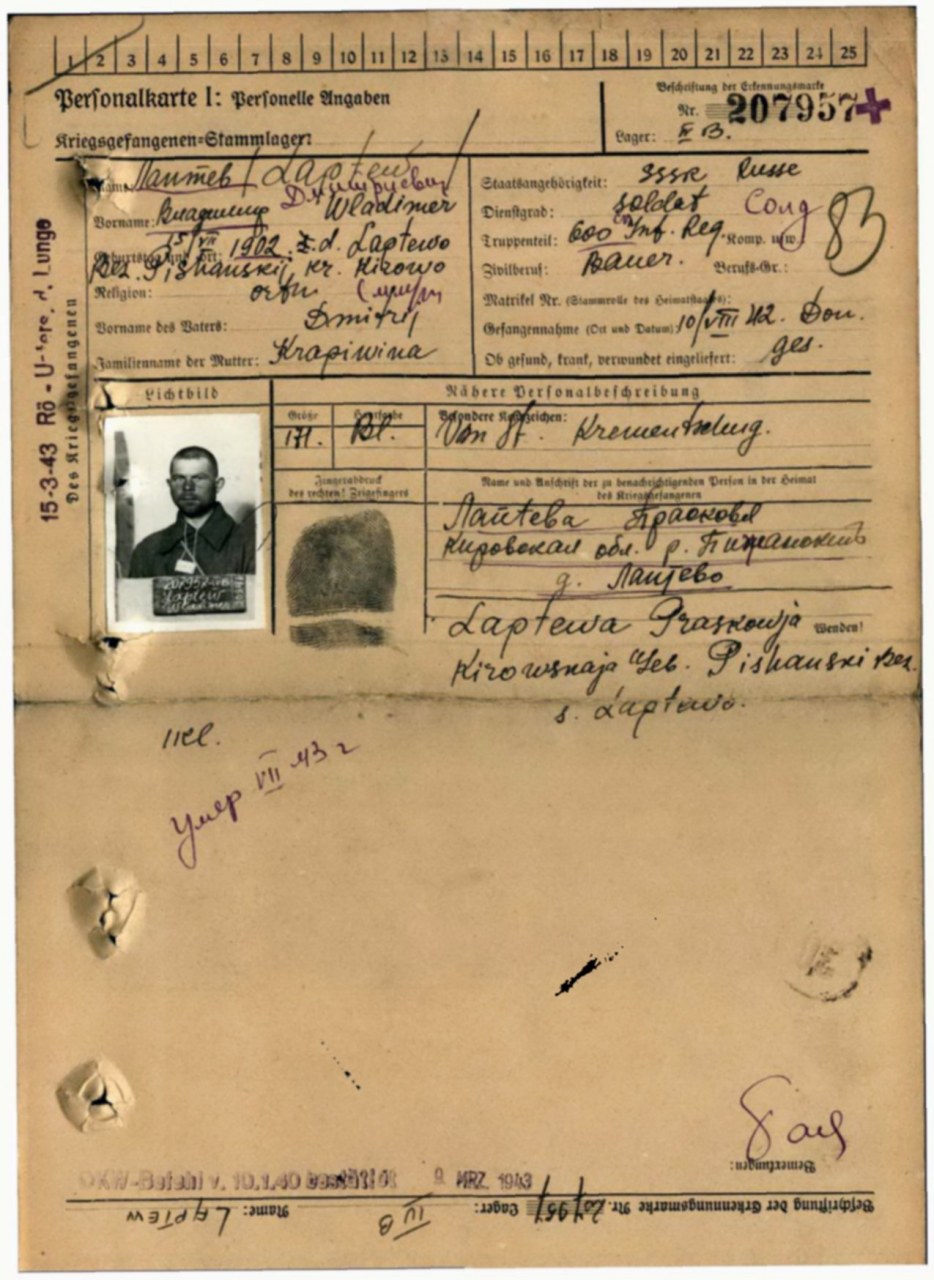 1 2 3 4 5 6 7 8 9 10 11 12 13 14 15 16 17 18 19 20 21 22 23 24 25
Personalkarte I: Personelle Angaben
Kriegsgefangenen-Stammlager:
Beschriftung der Erkennungsmarke
Nr. 207957
Lager: IV B.
Name: Лаптев / Laptew
Дмитриевич
Vorname: Владимир Wladimer
Geburtstag und -ort: 15/VII 1902. d. Laptewo
Bez. Pishanskij, kr. Kirowo
Religion: orth.
Vorname des Vaters: Dmitrij
Familienname der Mutter: Krapiwina
Staatsangehörigkeit: SSSR Russe
Dienstgrad: soldat Солд
Truppenteil: 600 Inf. Reg. Komp. usw.
Zivilberuf: Bauer. Berufs-Gr.:
Matrikel Nr. (Stammrolle des Heimatstaates):
Gefangennahme (Ort und Datum): 10/VIII 42. Don.
Ob gesund, krank, verwundet eingeliefert: ges.
83
15-3-43 Rö-U d. Lunge
Des Kriegsgefangenen
Lichtbild
Nähere Personalbeschreibung
Größe
Haarfarbe
Besondere Kennzeichen:
171. Bl. Von St. Krementschug.
Fingerabdruck
des rechten! Zeigefingers
Name und Anschrift der zu benachrichtigenden Person in der Heimat
des Kriegsgefangenen
Лаптева Прасковья
Кировская обл. р. Пижанский
д. Лаптево
207957 IVB
Laptew
Wladimer
Laptewa Praskowja
Wenden!
Kirowskaja Geb. Pishanski Bez.
s. Laptewo.
умер VII 43 г
Bemerkungen:
OKW-Befehl v. 10.1.40 bestätigt 9. MRZ. 1943
Beschriftung der Erkennungsmarke Nr. 207957 Lager: IV B Name: LAPTEW